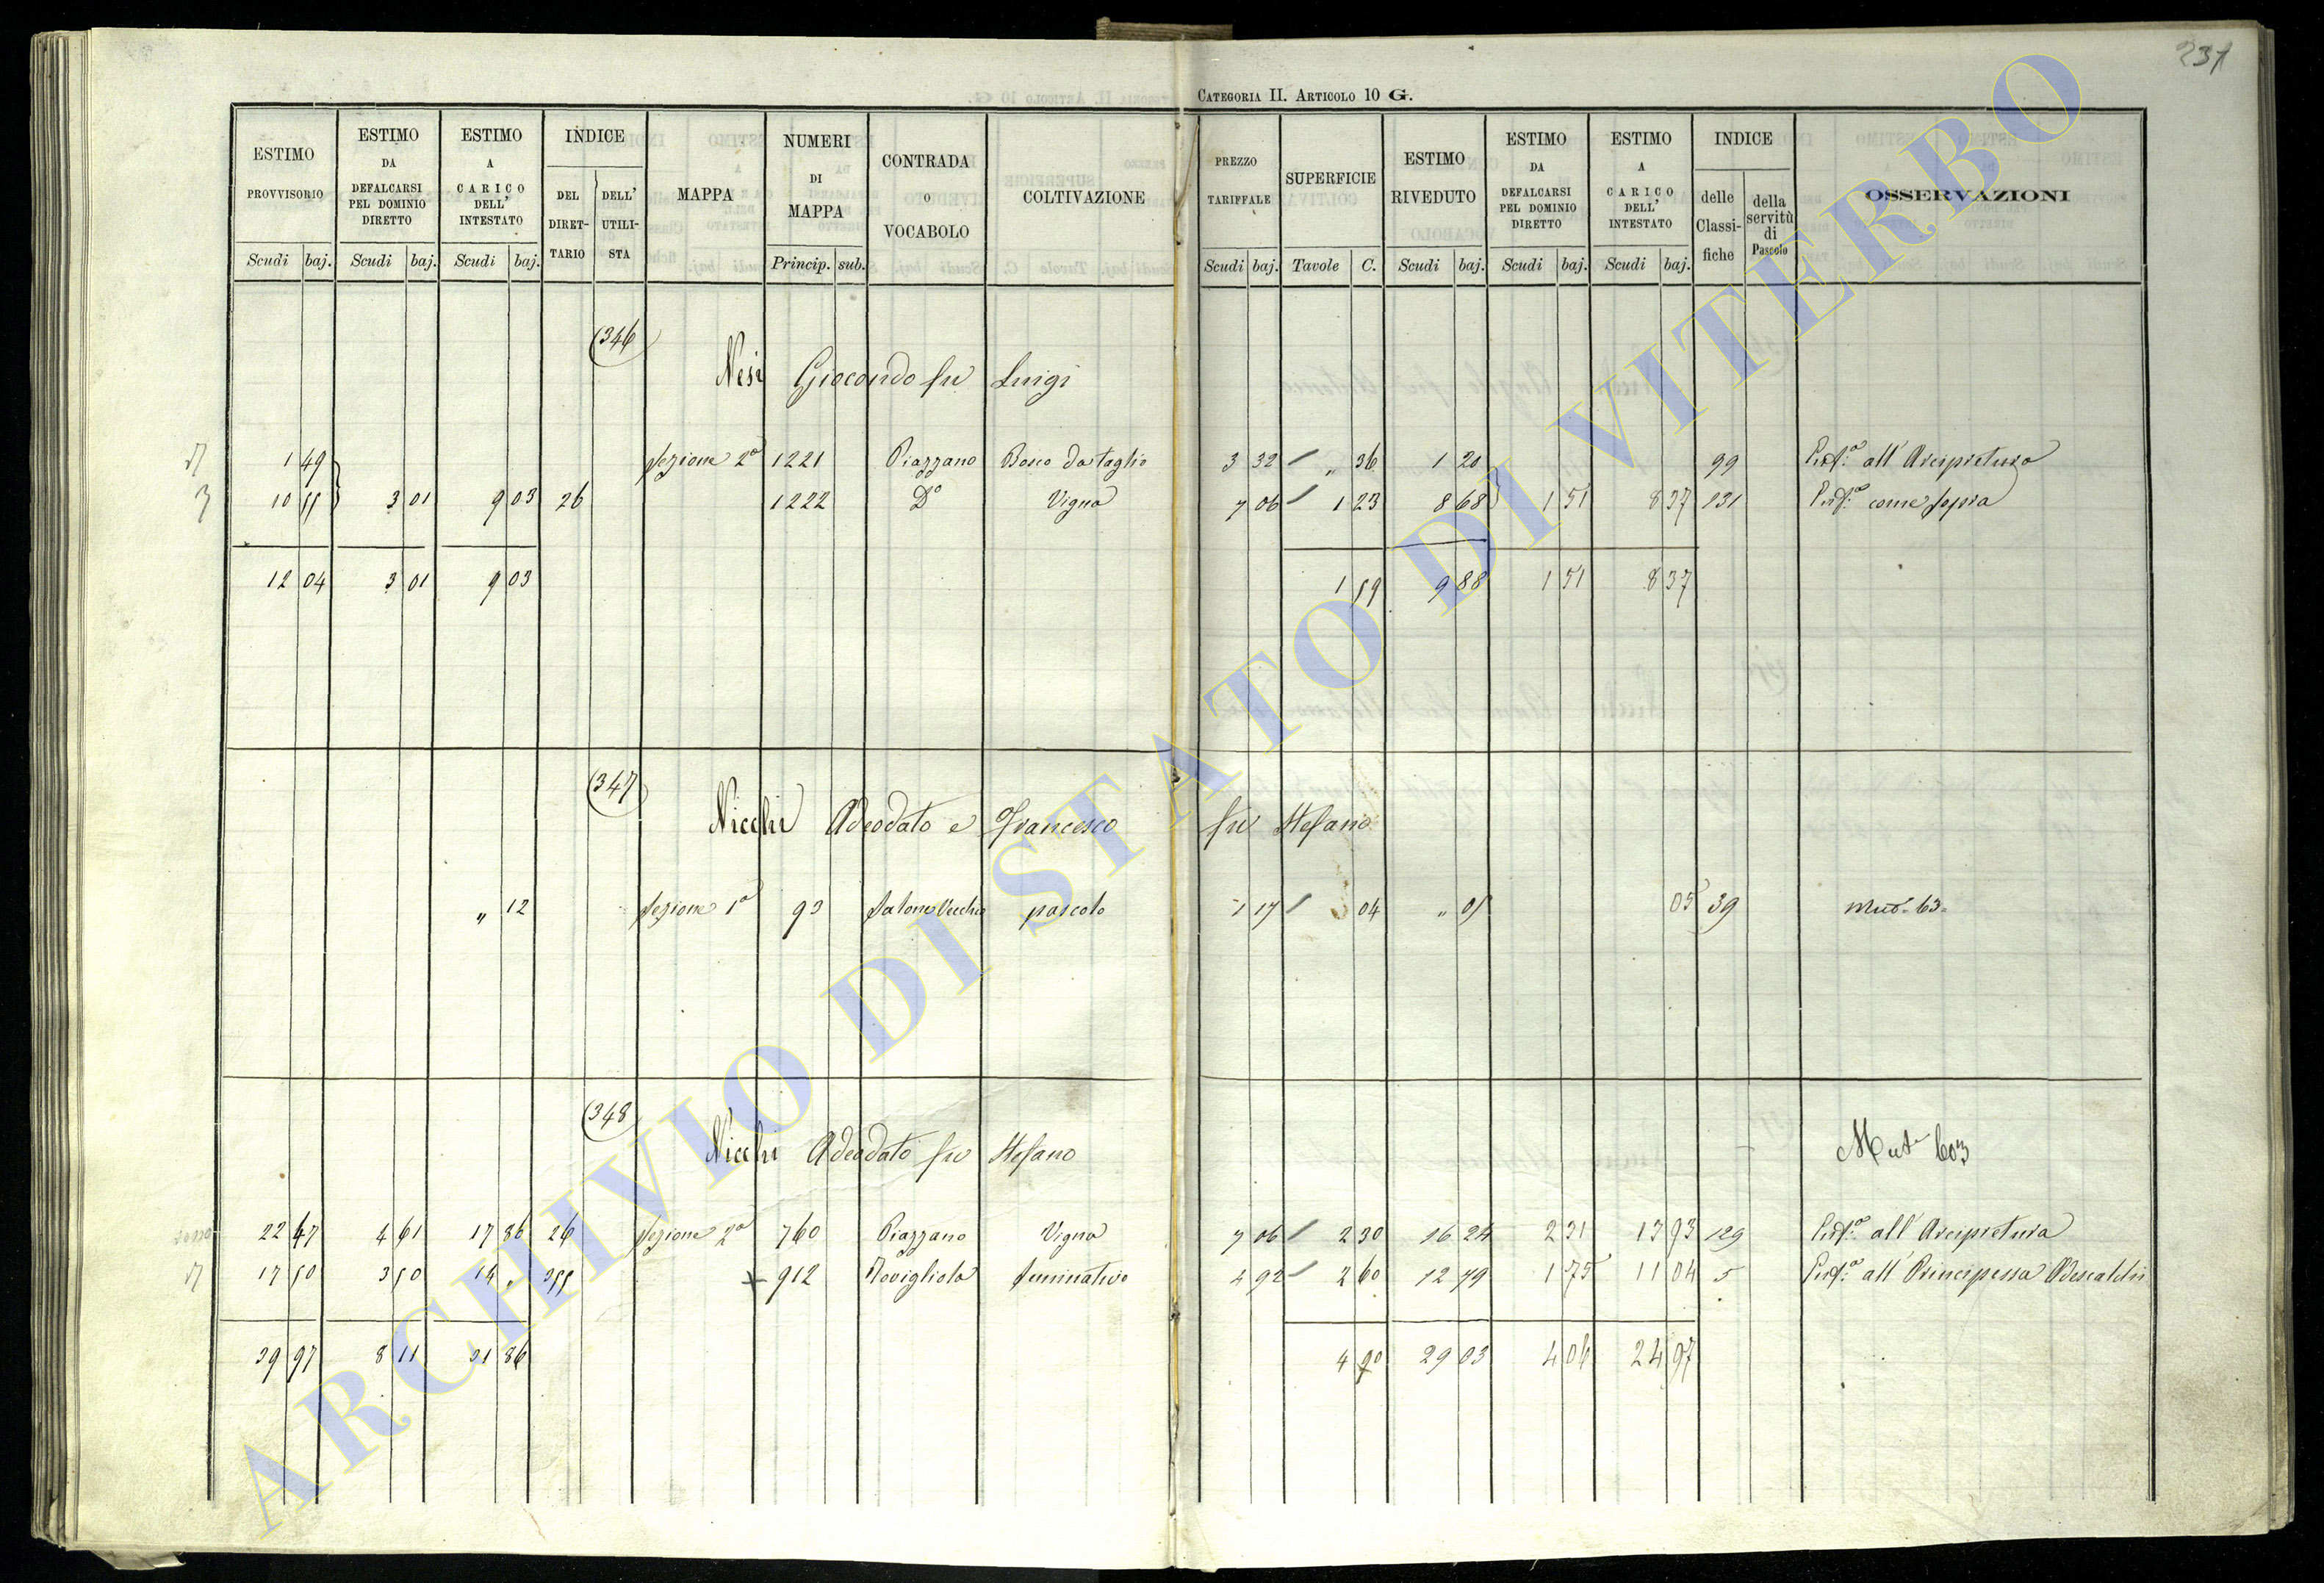 231
CATEGORIA II. ARTICOLO 10 G.
ESTIMO PROVVISORIO Scudi baj.
ESTIMO DA DEFALCARSI PEL DOMINIO DIRETTO Scudi baj.
ESTIMO A CARICO DELL' INTESTATO Scudi baj.
INDICE DEL DIRETTARIO DELL' UTILISTA
MAPPA
NUMERI DI MAPPA Princip. sub.
CONTRADA O VOCABOLO
COLTIVAZIONE
PREZZO TARIFFALE Scudi baj.
SUPERFICIE Tavole C.
ESTIMO RIVEDUTO Scudi baj.
ESTIMO DA DEFALCARSI PEL DOMINIO DIRETTO Scudi baj.
ESTIMO A CARICO DELL' INTESTATO Scudi baj.
INDICE delle Classifiche della servitù di Pascolo
OSSERVAZIONI
346
Nesi Giocondo fu Luigi
1 49 Sezione 2a 1221 Piazzano Bosco da taglio 3 32 " 36 1 20 99 all'Arcipretura
10 55 3 01 9 03 26 1222 Do Vigna 7 06 1 23 8 68 1 51 8 37 131 come sopra
12 04 3 01 9 03 1 59 9 88 1 51 8 37
347
Nicchi Adeodato e Francesco fu Stefano
" 12 Sezione 1a 93 pascolo 1 17 04 " 05 05 39 Mut. 63
348
Nicchi Adeodato fu Stefano
Mut 603
22 47 4 61 17 86 26 Sezione 2a 760 Piazzano Vigna 7 06 2 30 16 24 2 31 13 93 129 all'Arcipretura
17 50 3 50 14 " 355 912 Seminativo 4 92 2 60 12 79 1 75 11 04 5 all' Principessa Odescalchi
39 97 8 11 31 86 4 90 29 03 4 06 24 97
ARCHIVIO DI STATO DI VITERBO